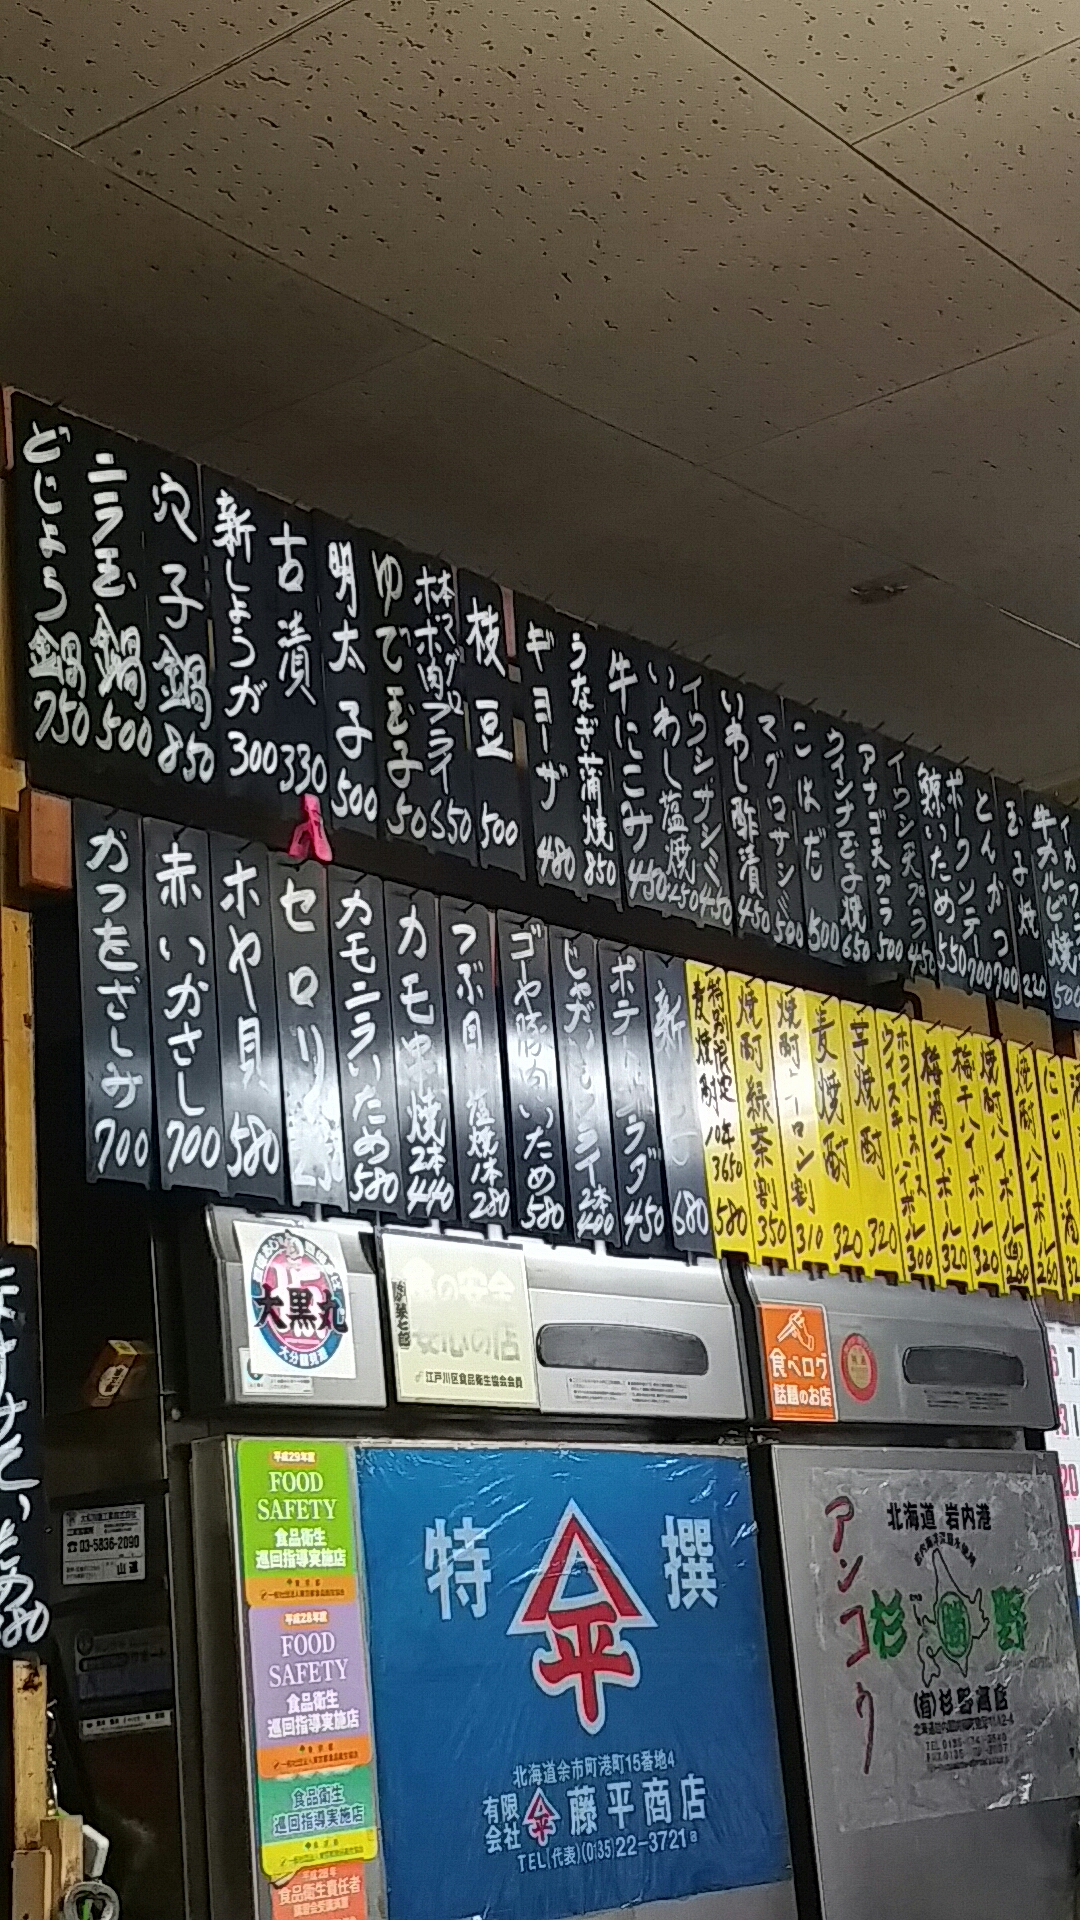 どじょう鍋 750
ニラ玉鍋 500
穴子鍋 850
新しょうが 300
古漬 330
明太子 500
ゆで玉子 50
本マグロ
ホホ肉フライ 650
枝豆 500
ギョーザ 480
うなぎ蒲焼 850
牛にこみ 450
いわし塩焼 450
イワシサシミ 450
いわし酢漬 450
マグロサシミ 500
こはだ 500
ウインナ玉子焼 650
アナゴ天プラ 500
イワシ天プラ 450
鯨いため 550
ポークソテー 700
とんかつ 700
玉子焼 220
牛カルビ焼 500
かつをざしみ 700
赤いかさし 700
ホヤ貝 580
セロリ
カモニラいため 580
カモ串焼 2本 440
つぶ貝 塩焼 1本 280
ゴーヤ豚肉いため 580
2本 400
ポテトサラダ 450
680
特別限定
麦焼酎 10年 3650 580
焼酎緑茶割 350
焼酎レモン割 310
麦焼酎 320
芋焼酎 320
ホワイトホース
ウイスキーハイボール 300
梅酒ハイボール 320
梅干ハイボール 320
焼酎ハイボール
焼酎ハイボール 260
にごり酒
大黒丸
大分鶴見港
食の安全
安心の店
江戸川区食品衛生協会会員
食べログ
話題のお店
平成29年度
FOOD
SAFETY
食品衛生
巡回指導実施店
平成28年度
FOOD
SAFETY
食品衛生
巡回指導実施店
食品衛生
巡回指導実施店
食品衛生責任者
☎03-5836-2090
特撰
平
北海道余市町港町15番地4
有限会社 藤平商店
TEL(代表)(0135)22-3721
アンコウ
北海道 岩内港
杉野
(有)杉野商店